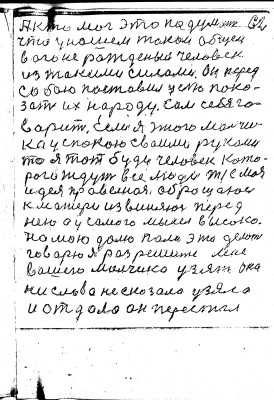 А кто мог это подумать 62
что у нашем таком общем
вагоне рожденый человек
из такими силами. Он перед
собою поставил цель пока-
зать их народу. Сам себе го-
варит, если я этого мальчи-
ка успокою своими руками
то я тот буду человек кото-
рого ждут все люди т/е моя
идея правельная, обрщаюся
к матери извиняюс перед
нею а у самого мысел высоко.
на мою долю пало это делать
говарю я разрешите мне
вашего мальчика узять она
ни слова не сказала узяла
и отдала он перестал